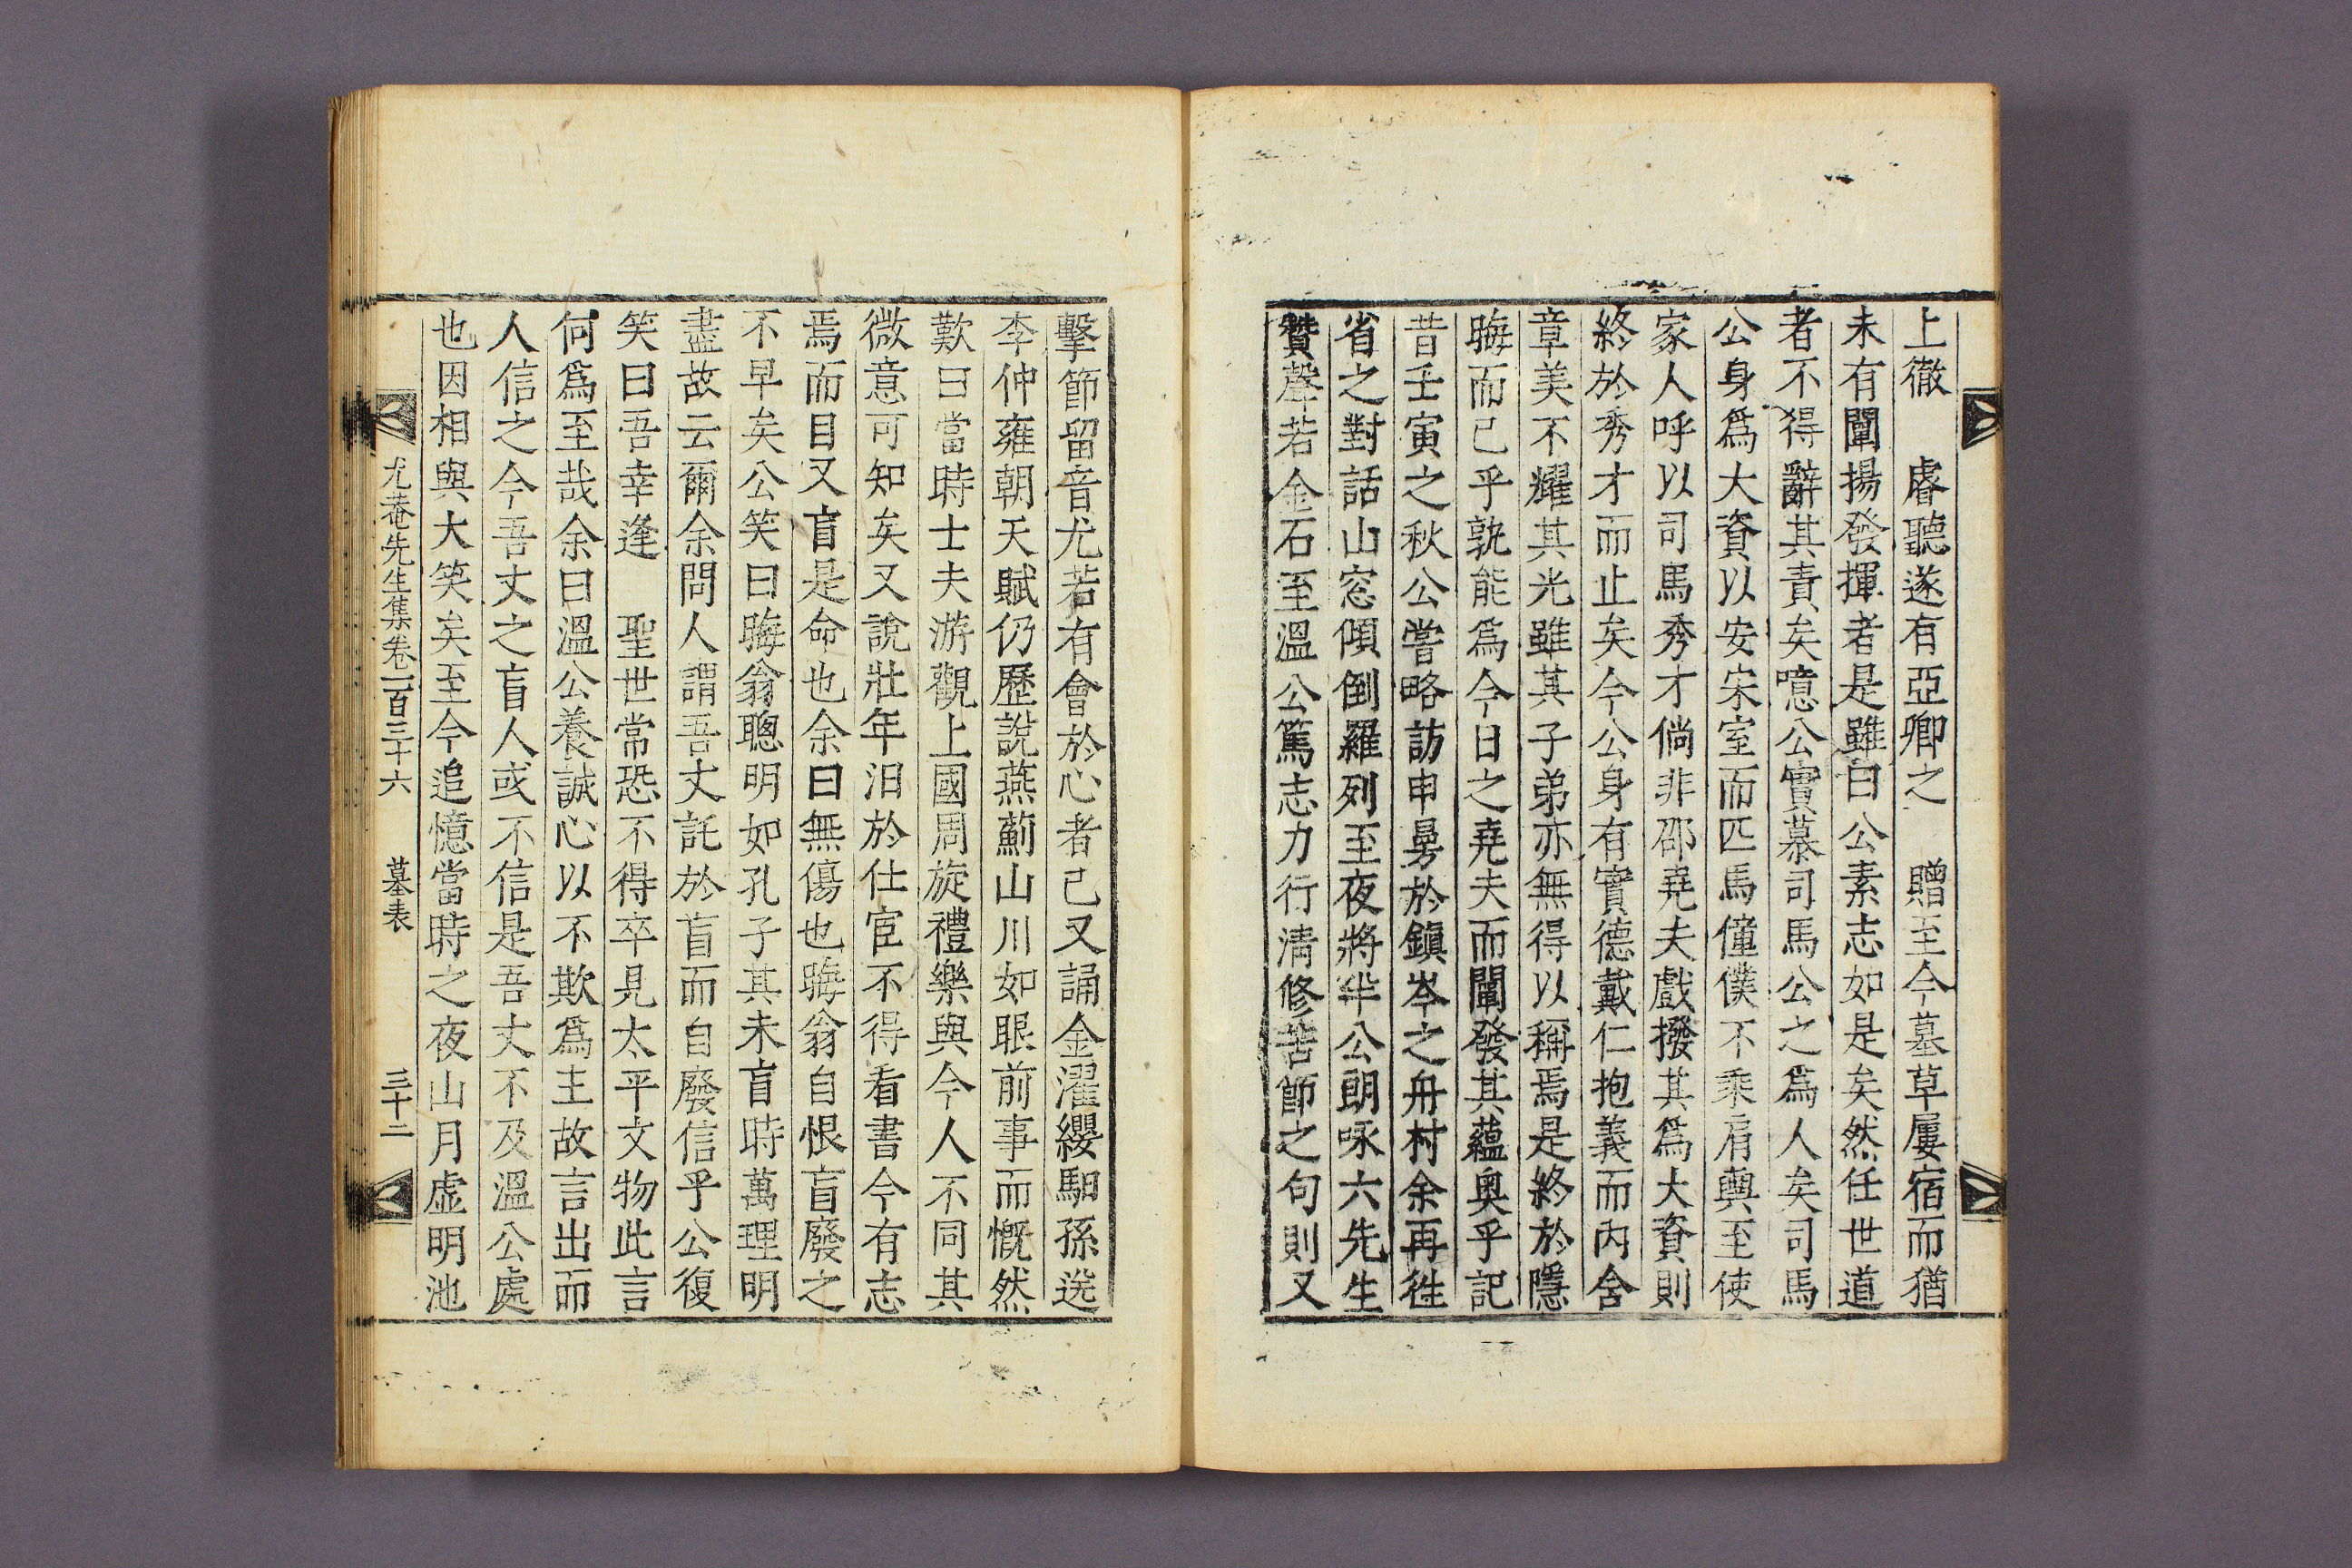 上徹　睿聽遂有亞卿之　贈至今墓草屢宿而猶
未有闡揚發揮者是雖曰公素志如是矣然任世道
者不得辭其責矣噫公實慕司馬公之爲人矣司馬
公身爲大資以安宋室而匹馬僮僕不乘肩輿至使
家人呼以司馬秀才倘非邵堯夫戲撥其爲大資則
終於秀才而止矣今公身有實德戴仁抱義而內含
章美不耀其光雖其子弟亦無得以稱焉是終於隱
晦而已乎孰能爲今日之堯夫而闡發其蘊奧乎記
昔壬寅之秋公嘗略訪申㬅於鎭岑之舟村余再徃
省之對話山窓傾倒羅列至夜將半公朗咏六先生
贊聲若金石至溫公篤志力行淸修苦節之句則又
擊節留音尤若有會於心者已又誦金濯纓馹孫送
李仲雍朝天賦仍歷說燕薊山川如眼前事而慨然
歎曰當時士夫游觀上國周旋禮樂與今人不同其
微意可知矣又說壯年汨於仕宦不得看書今有志
焉而目又盲是命也余曰無傷也晦翁自恨盲廢之
不早矣公笑曰晦翁聰明如孔子其未盲時萬理明
盡故云爾余問人謂吾丈託於盲而自廢信乎公復
笑曰吾幸逢　聖世常恐不得卒見太平文物此言
何爲至哉余曰溫公養誠心以不欺爲主故言出而
人信之今吾丈之盲人或不信是吾丈不及溫公處
也因相與大笑矣至今追憶當時之夜山月虛明池
尤菴先生集卷一百三十六　墓表　三十二